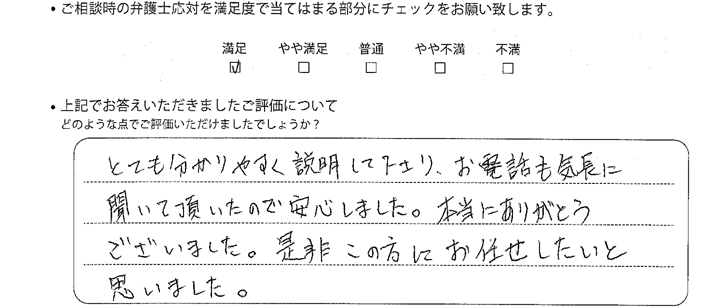 • ご相談時の弁護士応対を満足度で当てはまる部分にチェックをお願い致します。
満足 やや満足 普通 やや不満 不満
☑ □ □ □ □
• 上記でお答えいただきましたご評価について
どのような点でご評価いただけましたでしょうか？
とても分かりやすく説明して下さり、お電話も気長に
聞いて頂いたので安心しました。本当にありがとう
ございました。是非この方にお任せしたいと
思いました。